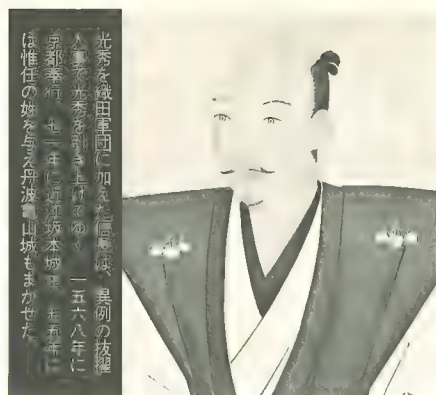 光秀を織田軍団に加えた信長は、異例の抜擢
人事で光秀を引き上げてゆく。一五六八年に
京都奉行、七一年に近江坂本城主、七五年に
は惟任の姓を与え丹波亀山城もまかせた。